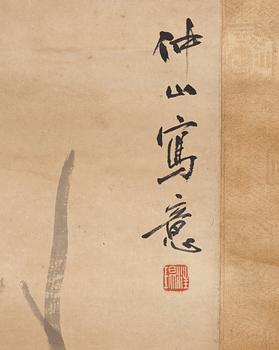 仲山寫意